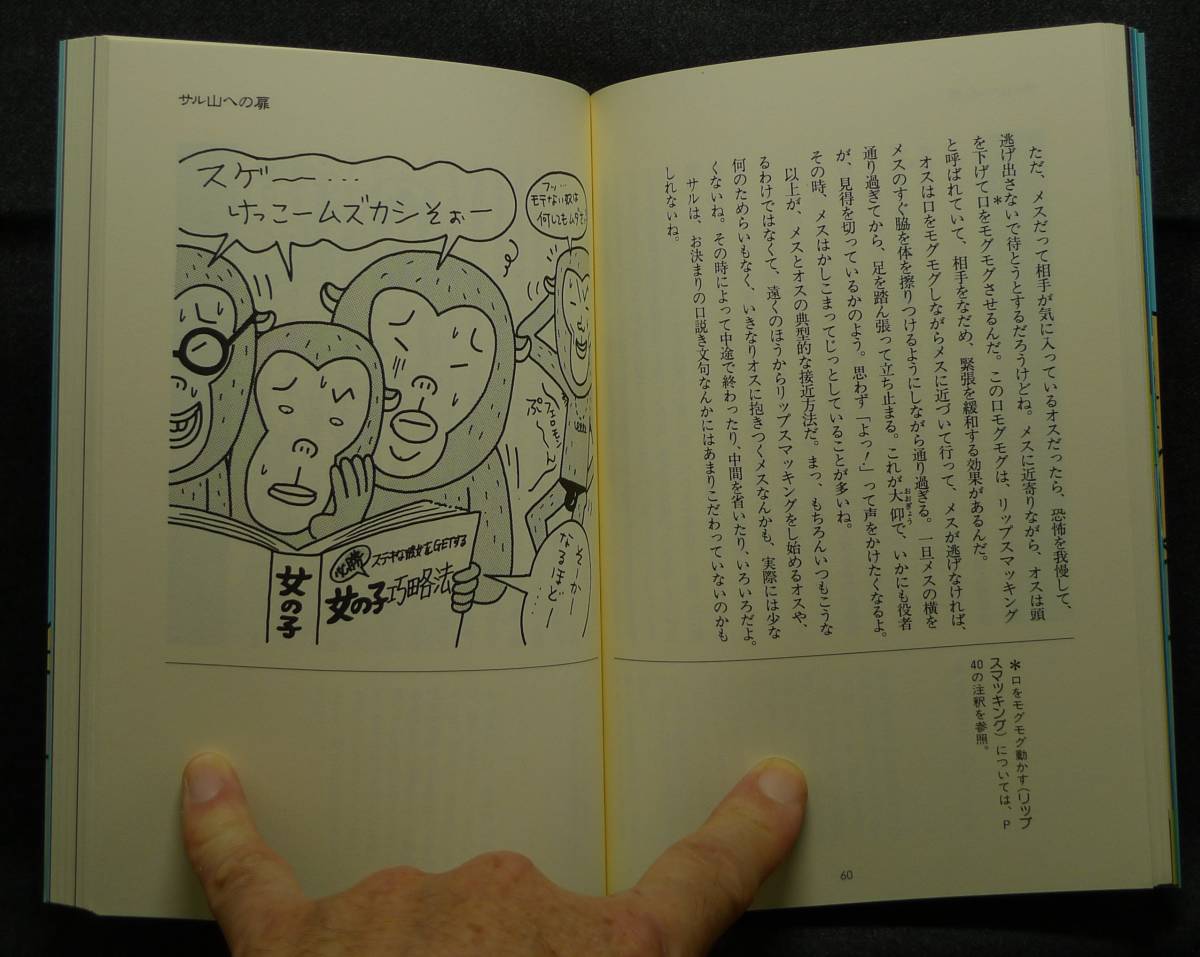 ただ、メスだって相手が気に入っているオスだったら、恐怖を我慢して、
逃げ出さないで待とうとするだろうけどね。メスに近寄りながら、オスは頭
を下げて口をモグモグさせるんだ。この口モグモグは、リップスマッキング*
と呼ばれていて、相手をなだめ、緊張を緩和する効果があるんだ。
オスは口をモグモグしながらメスに近づいて行って、メスが逃げなければ、
メスのすぐ脇を体を擦りつけるようにしながら通り過ぎる。一旦メスの横を
通り過ぎてから、足を踏ん張って立ち止まる。これが大仰で、いかにも役者
おおぎょう
が、見得を切っているかのよう。思わず「よっ!」って声をかけたくなるよ。
その時、メスはかしこまってじっとしていることが多いね。
以上が、メスとオスの典型的な接近方法だ。まっ、もちろんいつもこうな
るわけではなくて、遠くのほうからリップスマッキングをし始めるオスや、
何のためらいもなく、いきなりオスに抱きつくメスなんかも、実際には少な
くないね。その時によって中途で終わったり、中間を省いたり、いろいろだよ。
サルは、お決まりの口説き文句なんかにはあまりこだわっていないのかも
しれないね。
*口をモグモグ動かす(リップ
スマッキング)については、P
40の注釈を参照。
60
サル山への扉
フッ…
モテない奴は
何してもムダさ
スゲー…
けっこームズカシそぉー
フェロモン
ぷ〜〜ん
そーかー
なるほどー…
必勝
ステキな彼女をGETする
女の子巧略法
女の子